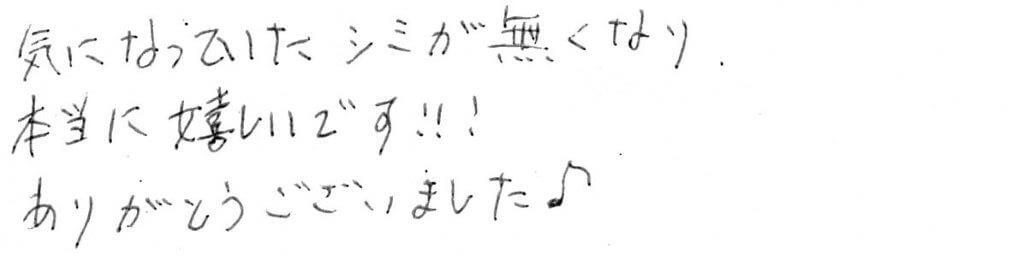 気になっていたシミが無くなり、
本当に嬉しいです!!!
ありがとうございました♪